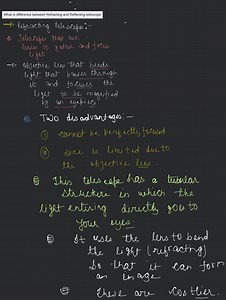 What is difference between Refracting and Reflecting telescope
→ Refracting Telescope:-
→ Telescopes that use
lenses to gather and focus
light
→ Objective lens that bends
light that passes through
it and focuses the
light to be magnified
by an eyepiece
Two disadvantages:-
① cannot be perfectly focused
② size is limited due to
the objective lens
This telescope has a tubular
structure in which the
light entering directly goes to
your eyes.
It uses the lens to bend
the light (refracting)
so that it can form
an image
These are costlier.